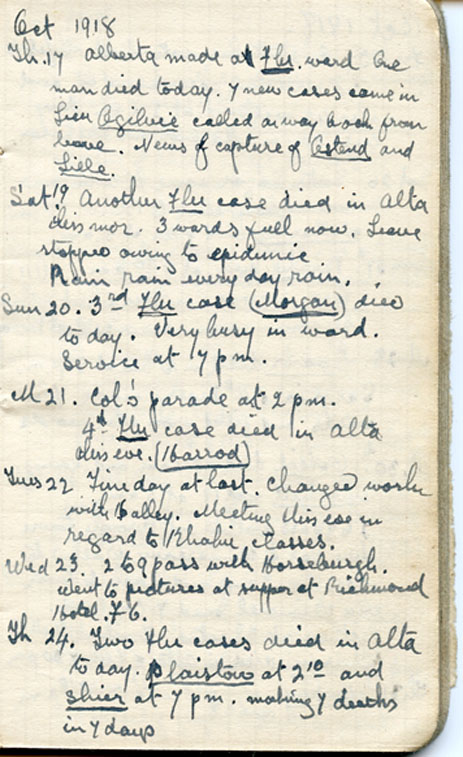 Oct 1918
Th. 17 Alberta made a Flu ward One
man died today. 7 new cases came in
Lieu Ogilvie called on way back from
leave. News of capture of Ostend and
Lille.
Sat 19 Another Flu case died in Alta
this mor. 3 wards full now. Leave
stopped owing to epidemic
Rain rain every day rain.
Sun 20. 3rd Flu case (Morgan) died
to day. Very busy in ward.
Service at 7 pm.
M 21. Col's parade at 2 pm.
4th Flu case died in Alta
this eve. (Harrod)
Tues 22 Fine day at last. Changed works
with Halley. Meeting this eve in
regard to Khahi classes.
Wed 23. 2 to 9 pass with Horseburgh.
Went to pictures at supper at Richmond
Hotel. 7 6.
Th 24. Two Flu cases died in Alta
to day. Plaistow at 2 10 and
Shier at 7 pm. making 7 deaths
in 7 days